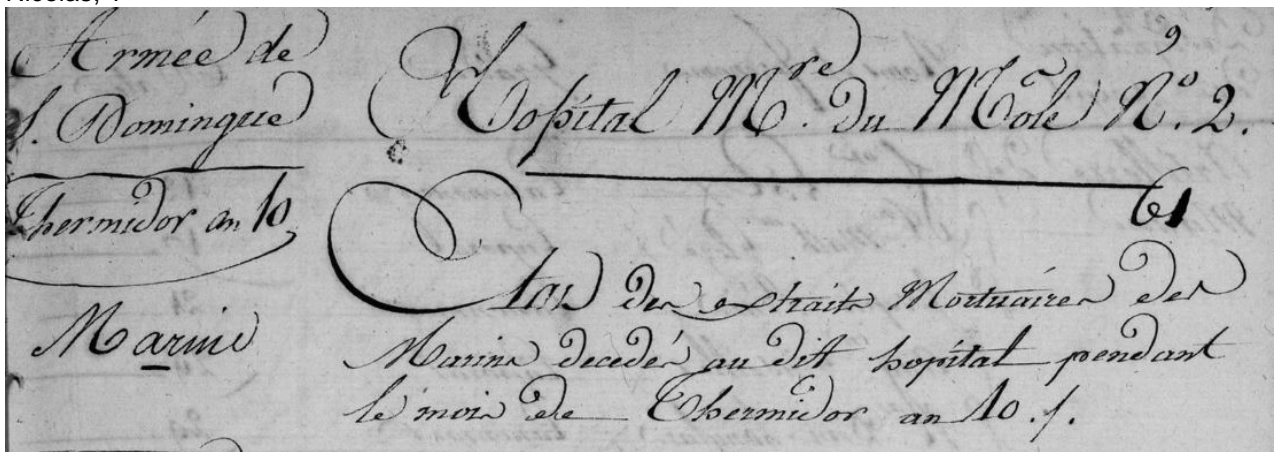 Armée de
S. Domingue
Thermidor an 10
Marine
Hopital M.re du Mole N.o 2.
61
Etat des extraits Mortuaires des
Marins decedés au dit hopital pendant
le mois de Thermidor an 10 ./.